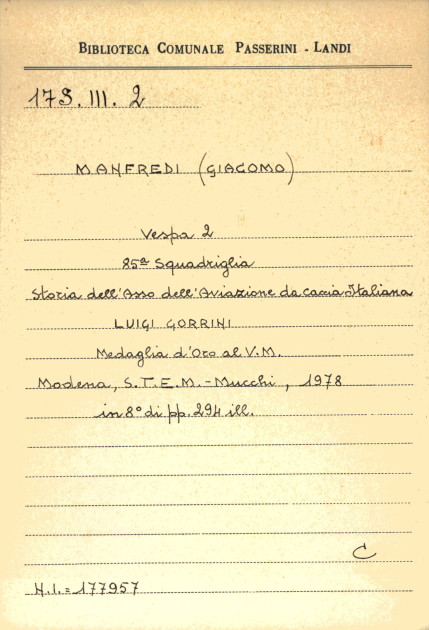 BIBLIOTECA COMUNALE PASSERINI - LANDI
17S. III. 2
MANFREDI (GIACOMO)
Vespa 2
85ª Squadriglia
Storia dell'Asso dell'Aviazione da caccia Italiana
LUIGI GORRINI
Medaglia d'Oro al V.M.
Modena, S.T.E.M.-Mucchi, 1978
in 8° di pp. 294 ill.
C
N.I.= 177957